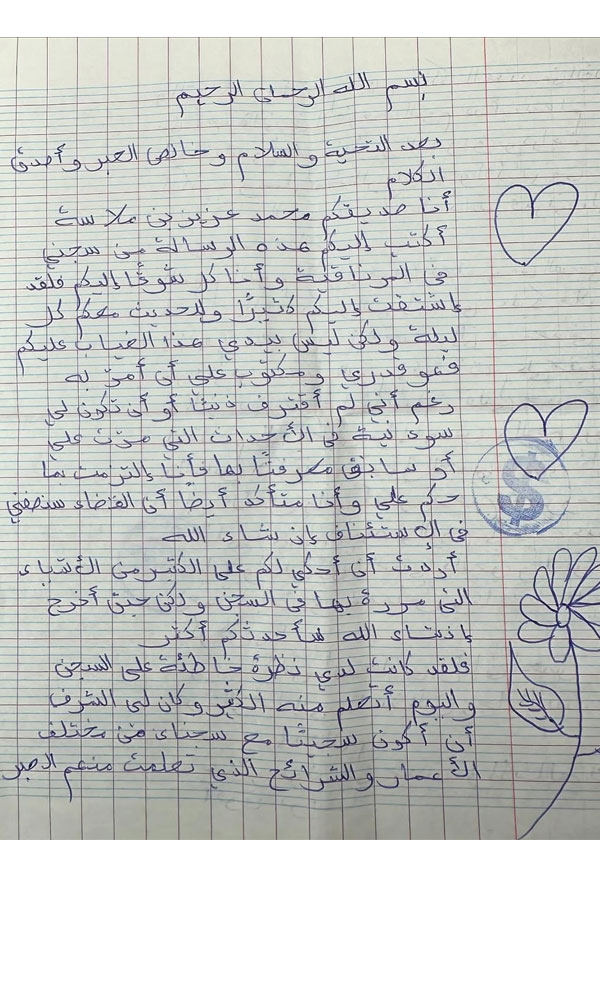 بسم الله الرحمان الرحيم
بعد التحية والسلام وخالص العبر وأصدق
الكلام
أنا صديقكم محمد عزيز بن ملاسة
أكتب إليكم هذه الرسالة من سجني
في المرناقية وأنا كل شوقًا إليكم فلقد
إشتقت إليكم كثيرًا ولحديث معكم كل
ليلة ولكن ليس بيدي هذا الغياب عليكم
فهو قدري ومكتوب علي أن أمرّ به
رغم أني لم أقترف ذنبًا أو أن تكون لي
سوء نية في الأحداث التي مرّت علي
أو سابق معرفتًا بها فأنا إلتزمت بما
حكم علي وأنا متأكد أيضًا أن القضاء سنصفني
في الاستئناف إن شاء الله
أردت أن أحكي لكم على الكثير من الأشياء
التي مررة بها في السجن ولكن حين أخرج
بإذنشاء الله سأحدثكم أكثر
فلقد كانت لدي نظرة خاطئة على السجن
واليوم أتعلم منه الكثير وكان لي الشرف
أن أكون سجينًا مع سجناء من مختلف
الأعمار والشرائح الذي تعلمت منهم الصبر